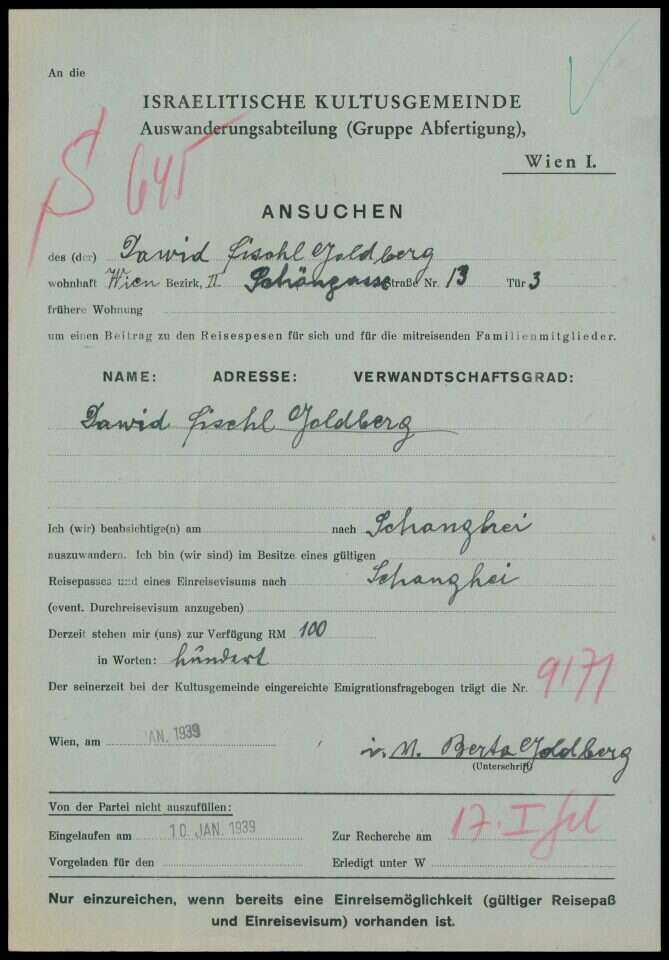 An die
ISRAELITISCHE KULTUSGEMEINDE
Auswanderungsabteilung (Gruppe Abfertigung),
Wien I.
S 645
ANSUCHEN
des (der) Dawid Fischl Goldberg
wohnhaft Wien Bezirk, II. Schöngasse Straße Nr. 13 Tür 3
frühere Wohnung
um einen Beitrag zu den Reisespesen für sich und für die mitreisenden Familienmitglieder.
NAME: ADRESSE: VERWANDTSCHAFTSGRAD:
Dawid Fischl Goldberg
Ich (wir) beabsichtige(n) am nach Schanghei
auszuwandern. Ich bin (wir sind) im Besitze eines gültigen
Reisepasses und eines Einreisevisums nach Schanghei
(event. Durchreisevisum anzugeben)
Derzeit stehen mir (uns) zur Verfügung RM 100
in Worten: hundert
Der seinerzeit bei der Kultusgemeinde eingereichte Emigrationsfragebogen trägt die Nr. 9171
Wien, am AN. 1939
i. V. Berta Goldberg
(Unterschrift)
Von der Partei nicht auszufüllen:
Eingelaufen am 10. JAN. 1939 Zur Recherche am 17. I
Vorgeladen für den Erledigt unter W
Nur einzureichen, wenn bereits eine Einreisemöglichkeit (gültiger Reisepaß
und Einreisevisum) vorhanden ist.